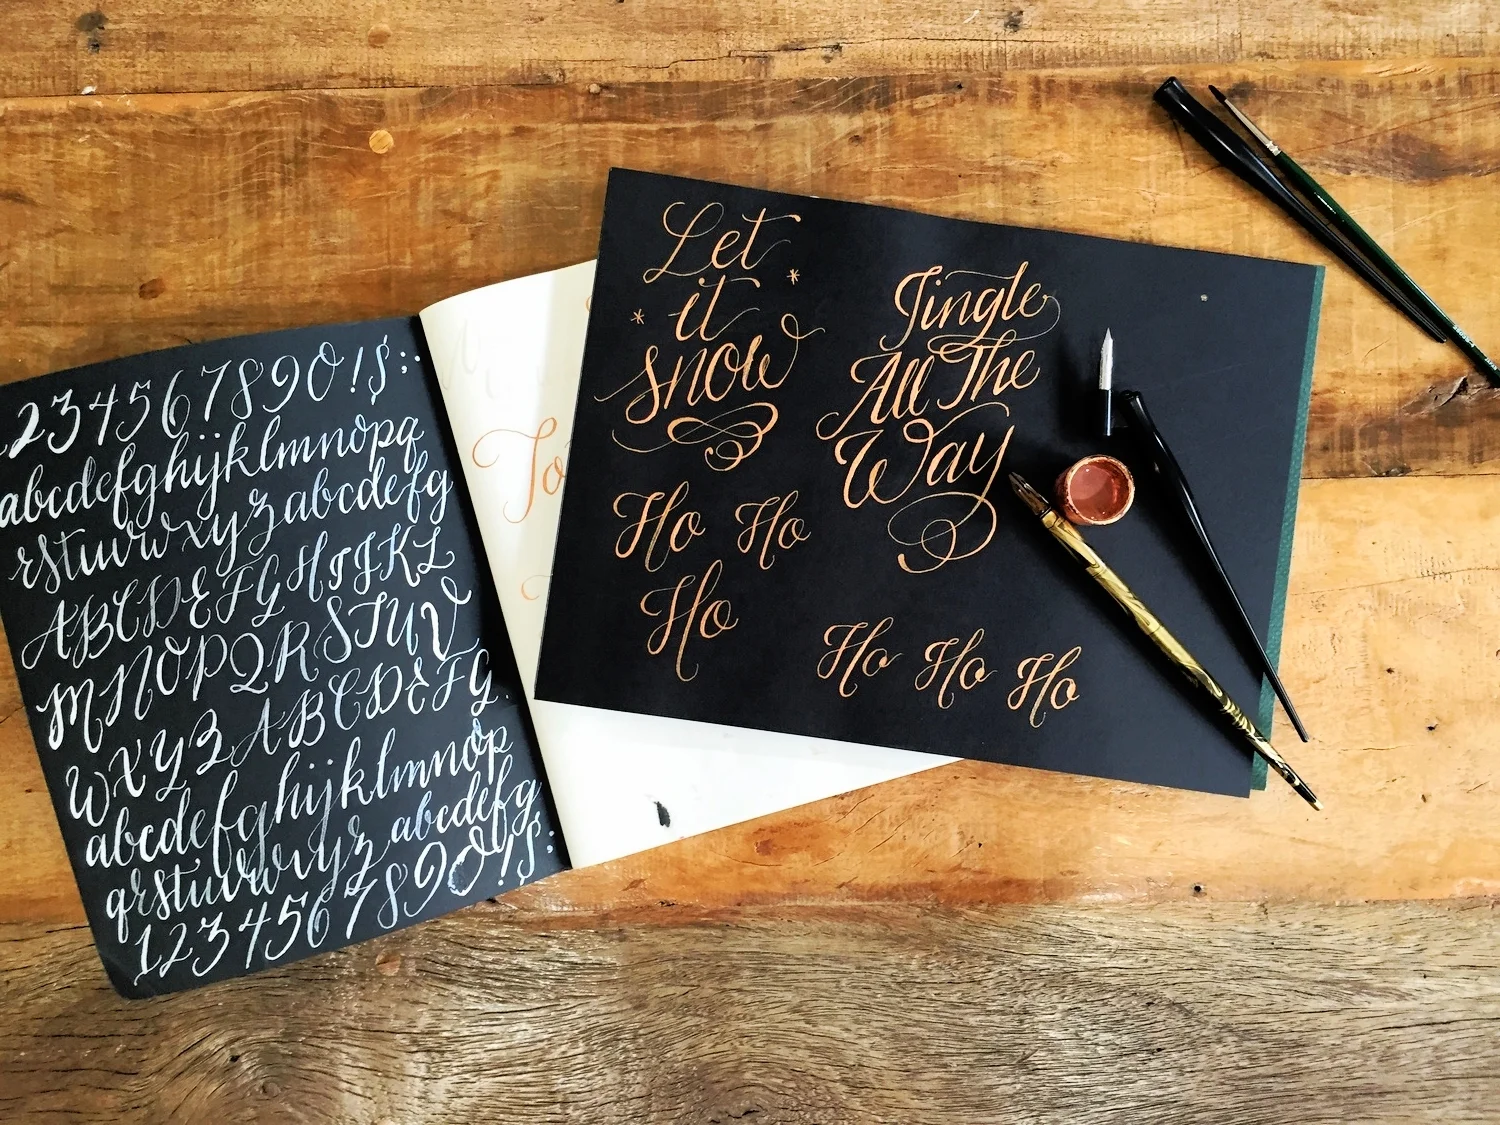 1234567890!$;:
abcdefghijklmnopq
rstuvwxyzabcdefg
ABCDEFGHIJKL
MNOPQRSTUV
WXYZABCDEFG
abcdefghijklmnop
qrstuvwxyzabcdefg
1234567890!$;:
To
Let
it
snow
Ho Ho
Ho
Jingle
All The
Way
Ho Ho Ho